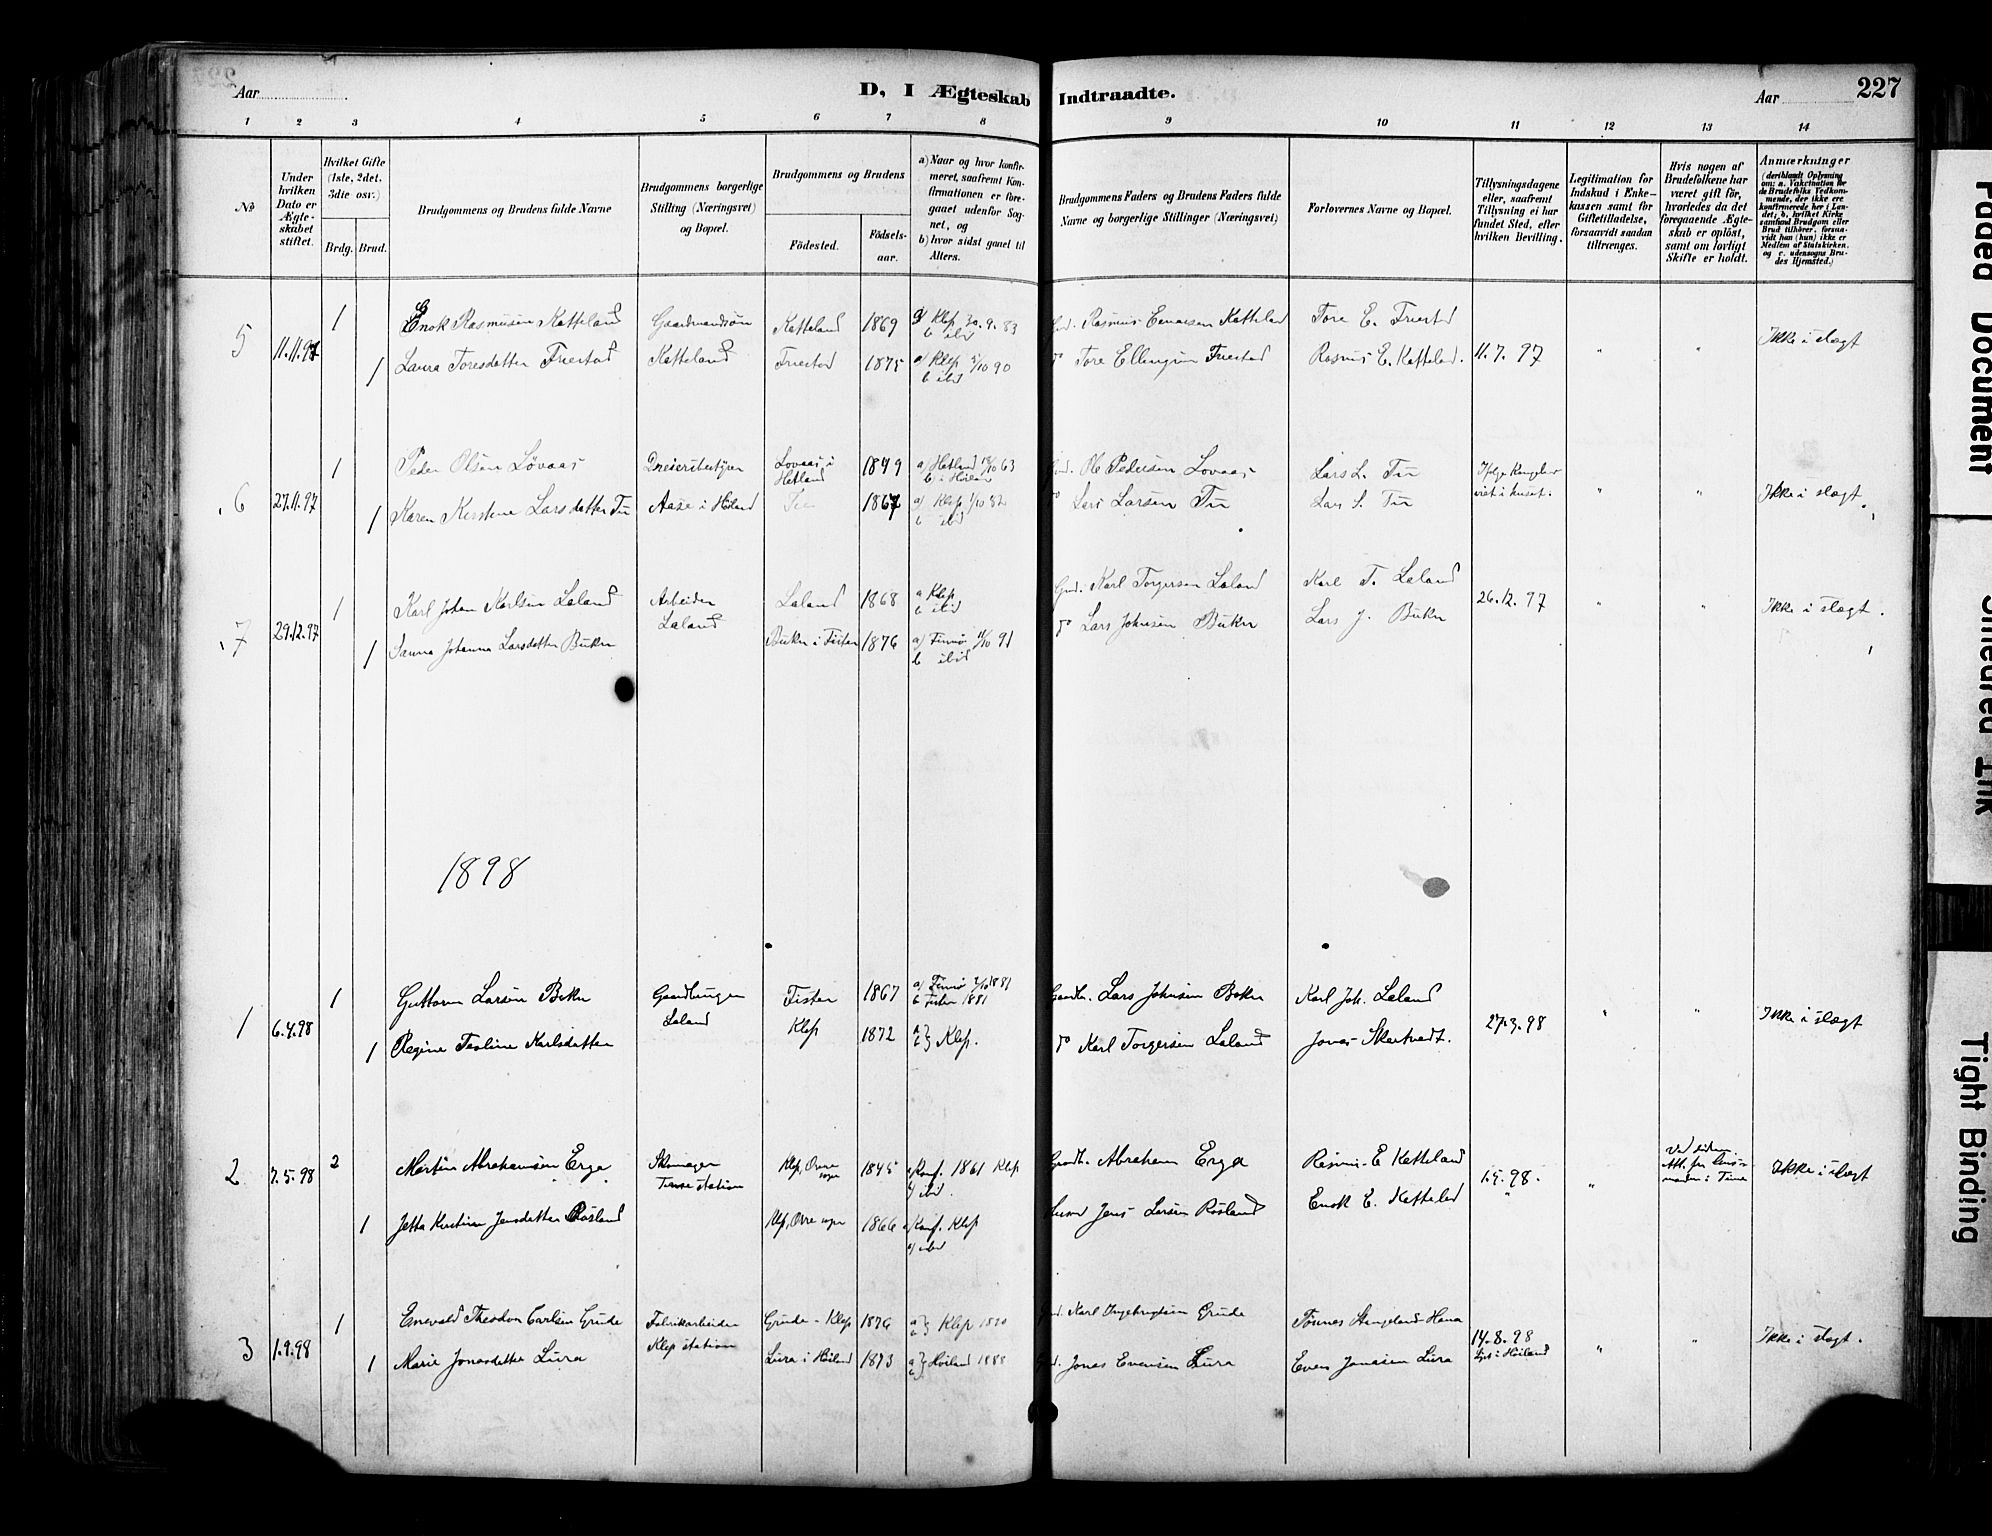 Aar
D, I Ægteskab Indtraadte.
Aar
227
1 2 3 4 5 6 7 8 9 10 11 12 13 14
No
Under hvilken Dato er Ægteskabet stiftet.
Hvilket Gifte (1ste, 2det, 3die osv.)
Brdg. Brud.
Brudgommens og Brudens fulde Navne
Brudgommens borgerlige Stilling (Næringsvei) og Bopæl.
Brudgommens og Brudens
Födested.
Födselsaar.
a) Naar og hvor konfirmeret, saafremt Konfirmationen er foregaaet udenfor Sognet, og
b) hvor sidst gaaet til Alters.
Brudgommens Faders og Brudens Faders fulde Navne og borgerlige Stillinger (Næringsvei)
Forlovernes Navne og Bopæl.
Tillysningsdagene eller, saafremt Tillysning ei har fundet Sted, efter hvilken Bevilling.
Legitimation for Indskud i Enkekassen samt for Giftetilladelse, forsaavidt saadan tiltrænges.
Hvis nogen af Brudefolkene har været gift för, hvorledes da det foregaaende Ægteskab er oplöst, samt om lovligt Skifte er holdt.
Anmærkninger (deriblandt Oplysning om: a. Vakcination for de Brudefolks Vedkommende, der ikke ere konfirmerede her i Landet; b. hvilket Kirkesamfund Brudgom eller Brud tilhörer, forsaavidt han (hun) ikke er Medlem af Statskirken, og c. udensogns Brudes Hjemsted.)
5 11.11.97 1 Enok Rasmusen Katteland Gaardmandssön Katteland 1869 a Klep 30.9.83 Gmd. Rasmus Katteland Tore E. Friestad
b ibid
1 Laura Toresdatter Friestad Katteland Friestad 1875 a) Klep 5/10 90 do Tore Ellingsen Friestad Rasmus E. Katteland. 11.7.97 " " Ikke i slægt
b ibid
6 27.11.97 1 Peder Olsen Lövaas Lovaas i Hetland 1849 a) Hetland 63 Ole Pedersen Lovaas Lars L. Tu
b i Höiland
1 Karen Kirstine Larsdatter Tu Aase i Höiland Tu 1867 a) Klep 1/10 82 do Lars Larsen Tu Lars S. Tu viet i huset. " " Ikke i slægt.
b ibid
7 29.12.97 1 Karl Johan Karlsen Laland Arbeider Laland Laland 1868 a Klep Gmd. Karl Torgersen Laland Karl T. Laland 26.12.97 " " Ikke i slægt.
b ibid
1 Johanna Larsdatter Bukn Bukn i Fister 1876 a) Finnö 91 do Lars Johnsen Bukn Lars J. Bukn
b ibid
1898
1 6.4.98 1 Guttorm Larsen Bokn Laland Fister 1867 a) Finnö 1881 Lars Johnsen Bokn Karl Joh. Laland
b Fister 1881
1 Regine Teoline Karlsdatter Klep 1872 a} b} Klep. do Karl Torgersen Laland Jonas Skartvedt. 27.3.98 " " Ikke i slægt
2 7.5.98 2 Martin Abrahamsen Erga Skomager Time station Klep, Orre sogn 1845 a) Konf. 1861 Klep Abraham Erga Rasmus E Katteland 1.5.98. " Ikke i slægt
b) ibid.
1 Jetta Kristine Jensdatter Rosland Klep, Orre sogn 1866 a) Konf. Klep Jens Larsen Rosland Enok E. Katteland
b) ibid
3 1.9.98 1 Enevald Theodor Carlsen Grude Fabrikarbeider Klep station Grude - Klep 1876 a} b} Klep Karl Ingebrigtsen Grude Tönnes Stangeland Hana
1 Marie Jonasdatter Lura Lura i Höiland 1873 a} b} Höiland 1888 Jonas Evensen Lura Even Jonasen Lura 14.8.98 Lyst i Höiland " " Ikke i slægt.
Faded Document
Smeared Ink
Tight Binding